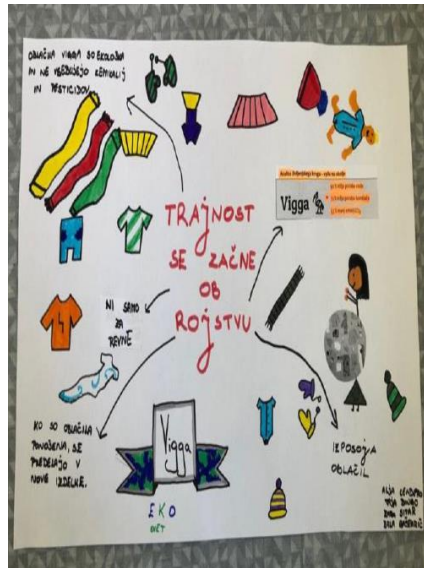 OBLAČILA VIGGA SO EKOLOŠKA
IN NE VSEBUJEJO KEMIKALIJ
IN PESTICIDOV
TRAJNOST
SE ZAČNE
OB
ROJSTVU
Vigga
NI SAMO
ZA
REVNE
KO SO OBLAČILA
PONOŠENA, SE
PREDELAJO V
NOVE IZDELKE.
Vigga
EKO
SVET
IZPOSOJA
OBLAČIL